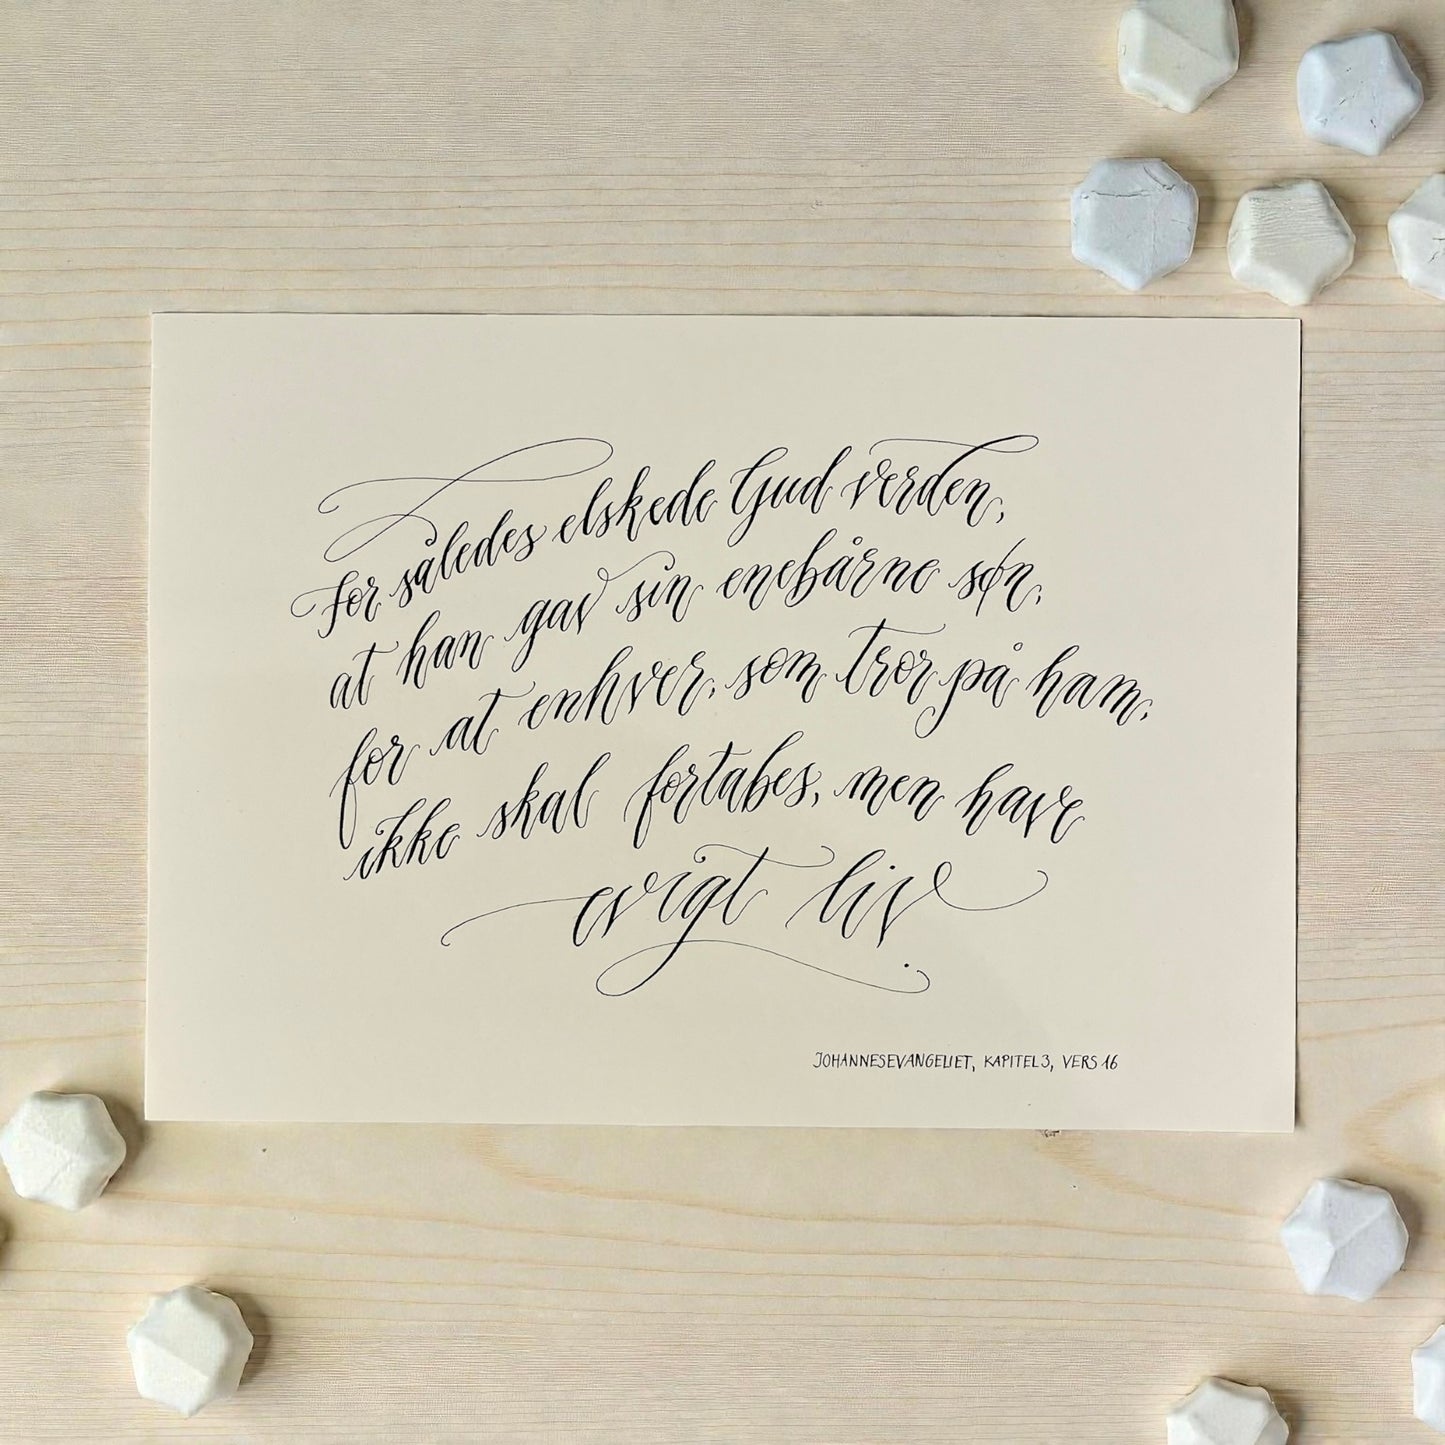 For således elskede Gud verden,
at han gav sin enebårne søn,
for at enhver, som tror på ham,
ikke skal fortabes, men have
evigt liv.
JOHANNESEVANGELIET, KAPITEL 3, VERS 16